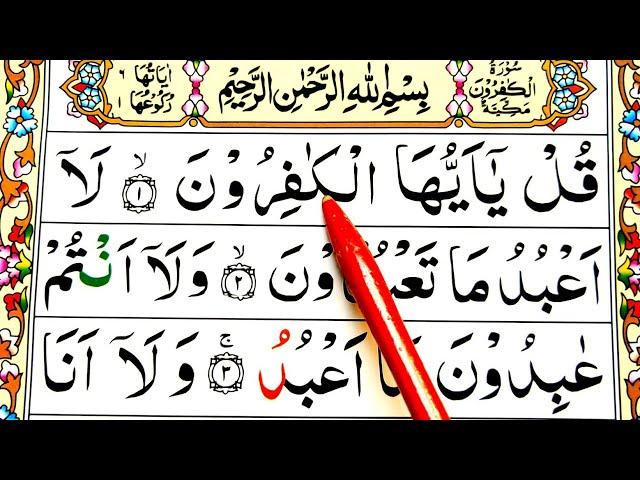 سُوْرَةُ
الْكٰفِرُوْنَ
مَكِّيَّةٌ
بِسْمِ اللّٰهِ الرَّحْمٰنِ الرَّحِيْمِ
اٰيَاتُهَا ٦
رُكُوْعُهَا ١
قُلْ يٰۤاَيُّهَا الْكٰفِرُوْنَ ۙ‏﴿۱﴾ لَاۤ
اَعْبُدُ مَا ۙ‏﴿۲﴾ وَلَاۤ اَنْتُمْ
عٰبِدُوْنَ اَعْبُدُ ۚ‏﴿۳﴾ وَلَاۤ اَنَا